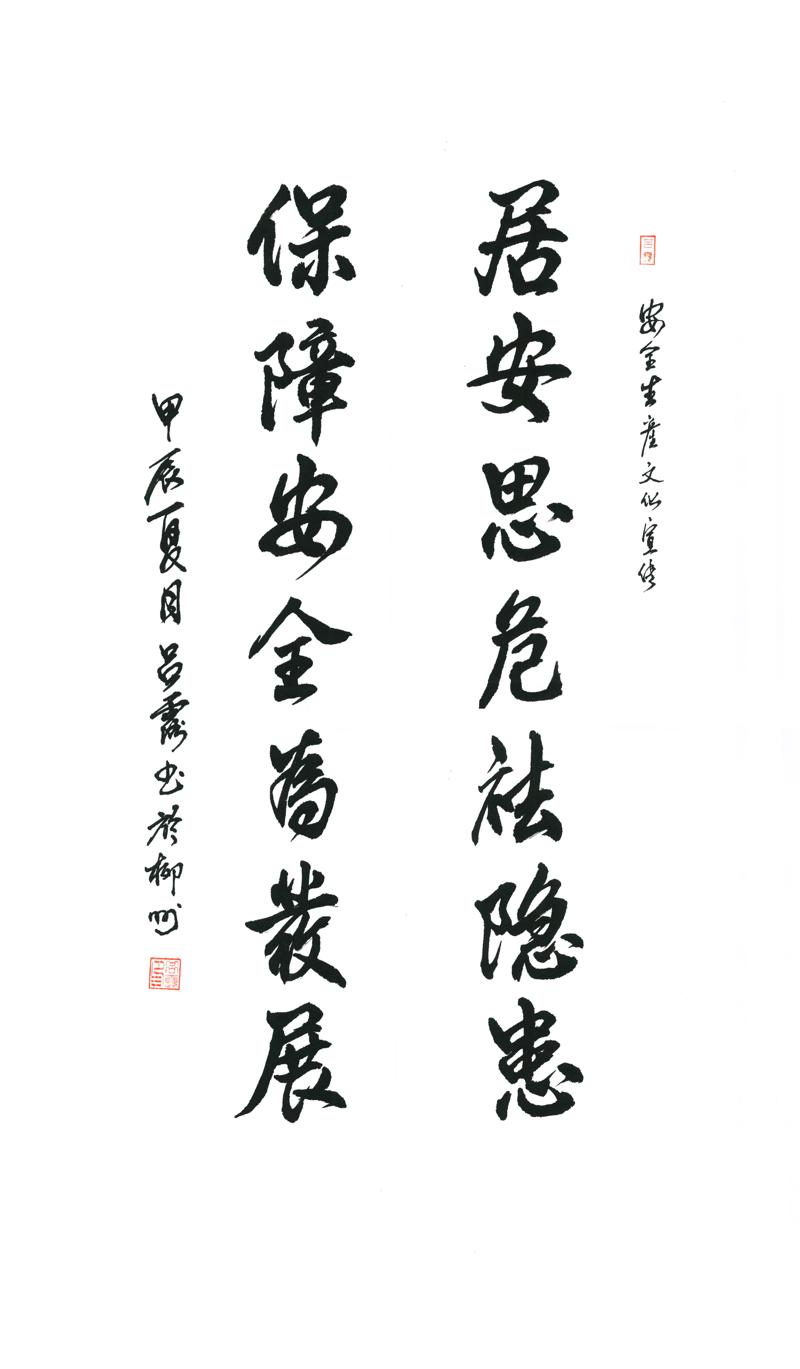 安全生產文化宣传
居安思危祛隐患
保障安全為發展
甲辰夏月呂露书於柳州